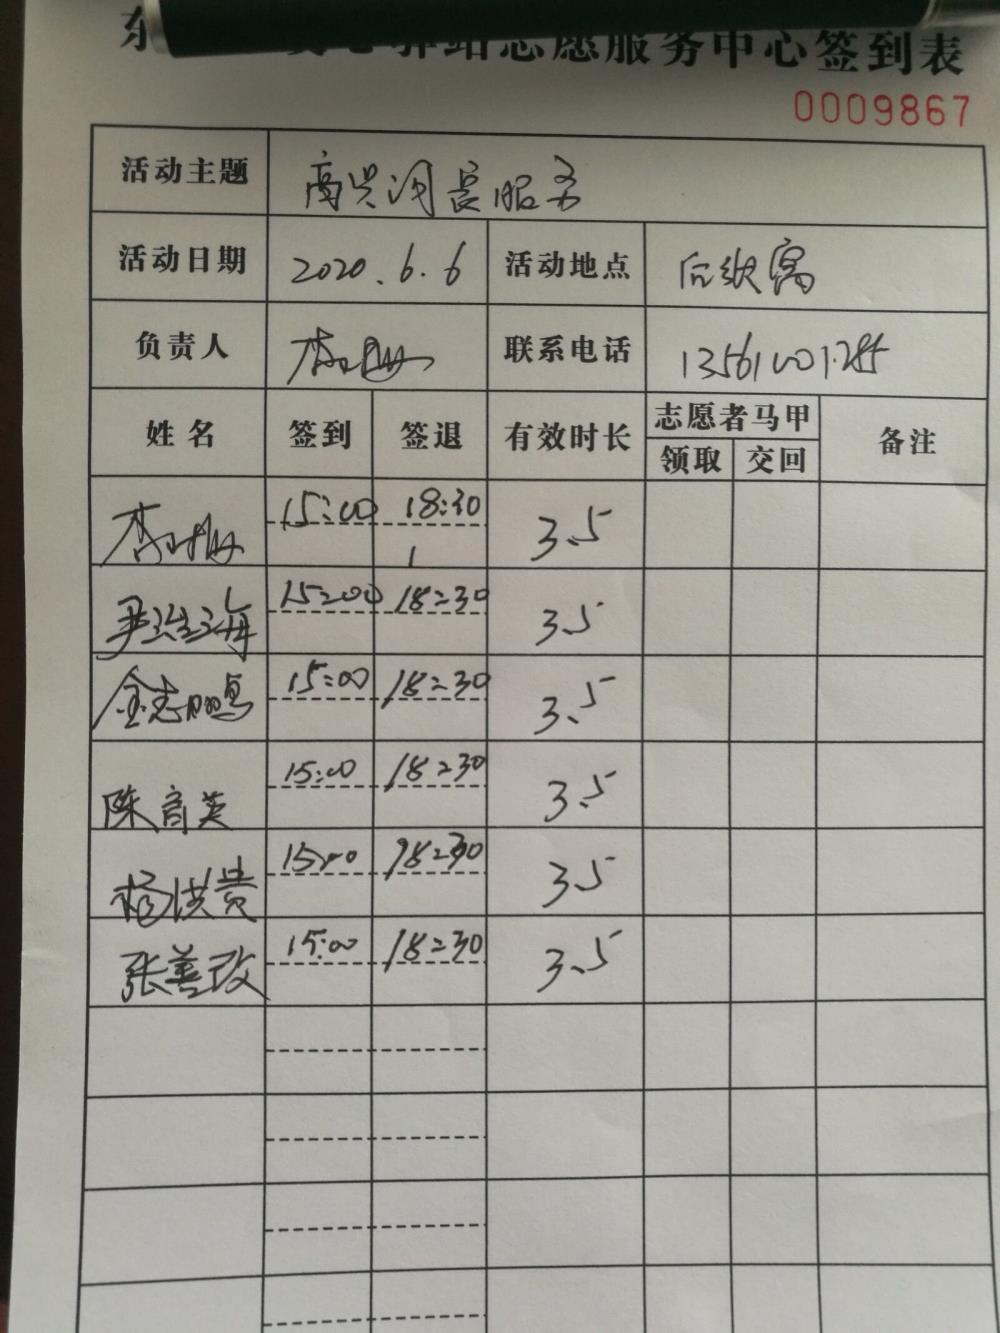 志愿服务中心签到表
0009867
活动主题 高兴河长服务
活动日期 2020.6.6 活动地点
负责人 联系电话
姓名 签到 签退 有效时长 志愿者马甲 备注
领取 交回
15:00 18:30 3.5
尹 海 15:00 18:30 3.5
金志鹏 15:00 18:30 3.5
陈育英 15:00 18:30 3.5
杨洪贵 15:00 18:30 3.5
张善政 15:00 18:30 3.5